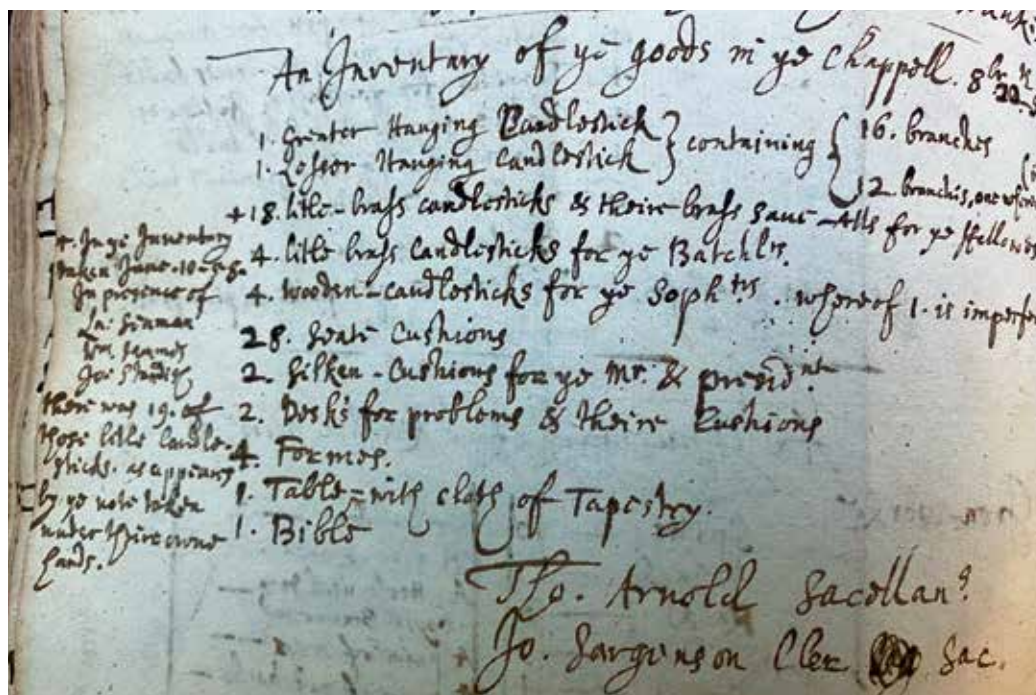 An Inventury of ye goods in ye Chappell. 8br
1. Greater Hanging Candlestick } containing { 16. branches
1. Lesser Hanging Candlestick 12 branches, one where
+18. litle-brass candlesticks & theire brass save-Alls for ye ffellows
4. litle brass candlesticks for ye Batchlrs.
4. wooden-candlesticks for ye Sophtrs. whereof 1. is imperfe
28. Seate Cushions
2. Silken-Cushions for ye Mr. & presidnt
2. Desks for problems & theire Cushions
4. Formes.
1. Table-with cloth of Tapestry.
1. Bible
Tho. Arnold Sacellan9.
Jo. Sargenson Cler Sac.
+. In ye Inventury
taken June-10-58.
In presence of
La: Senman
Wm.
Joi
there was 19. of
those litle Candle-
sticks. as appears
by ye note taken
under theire owne
hands.